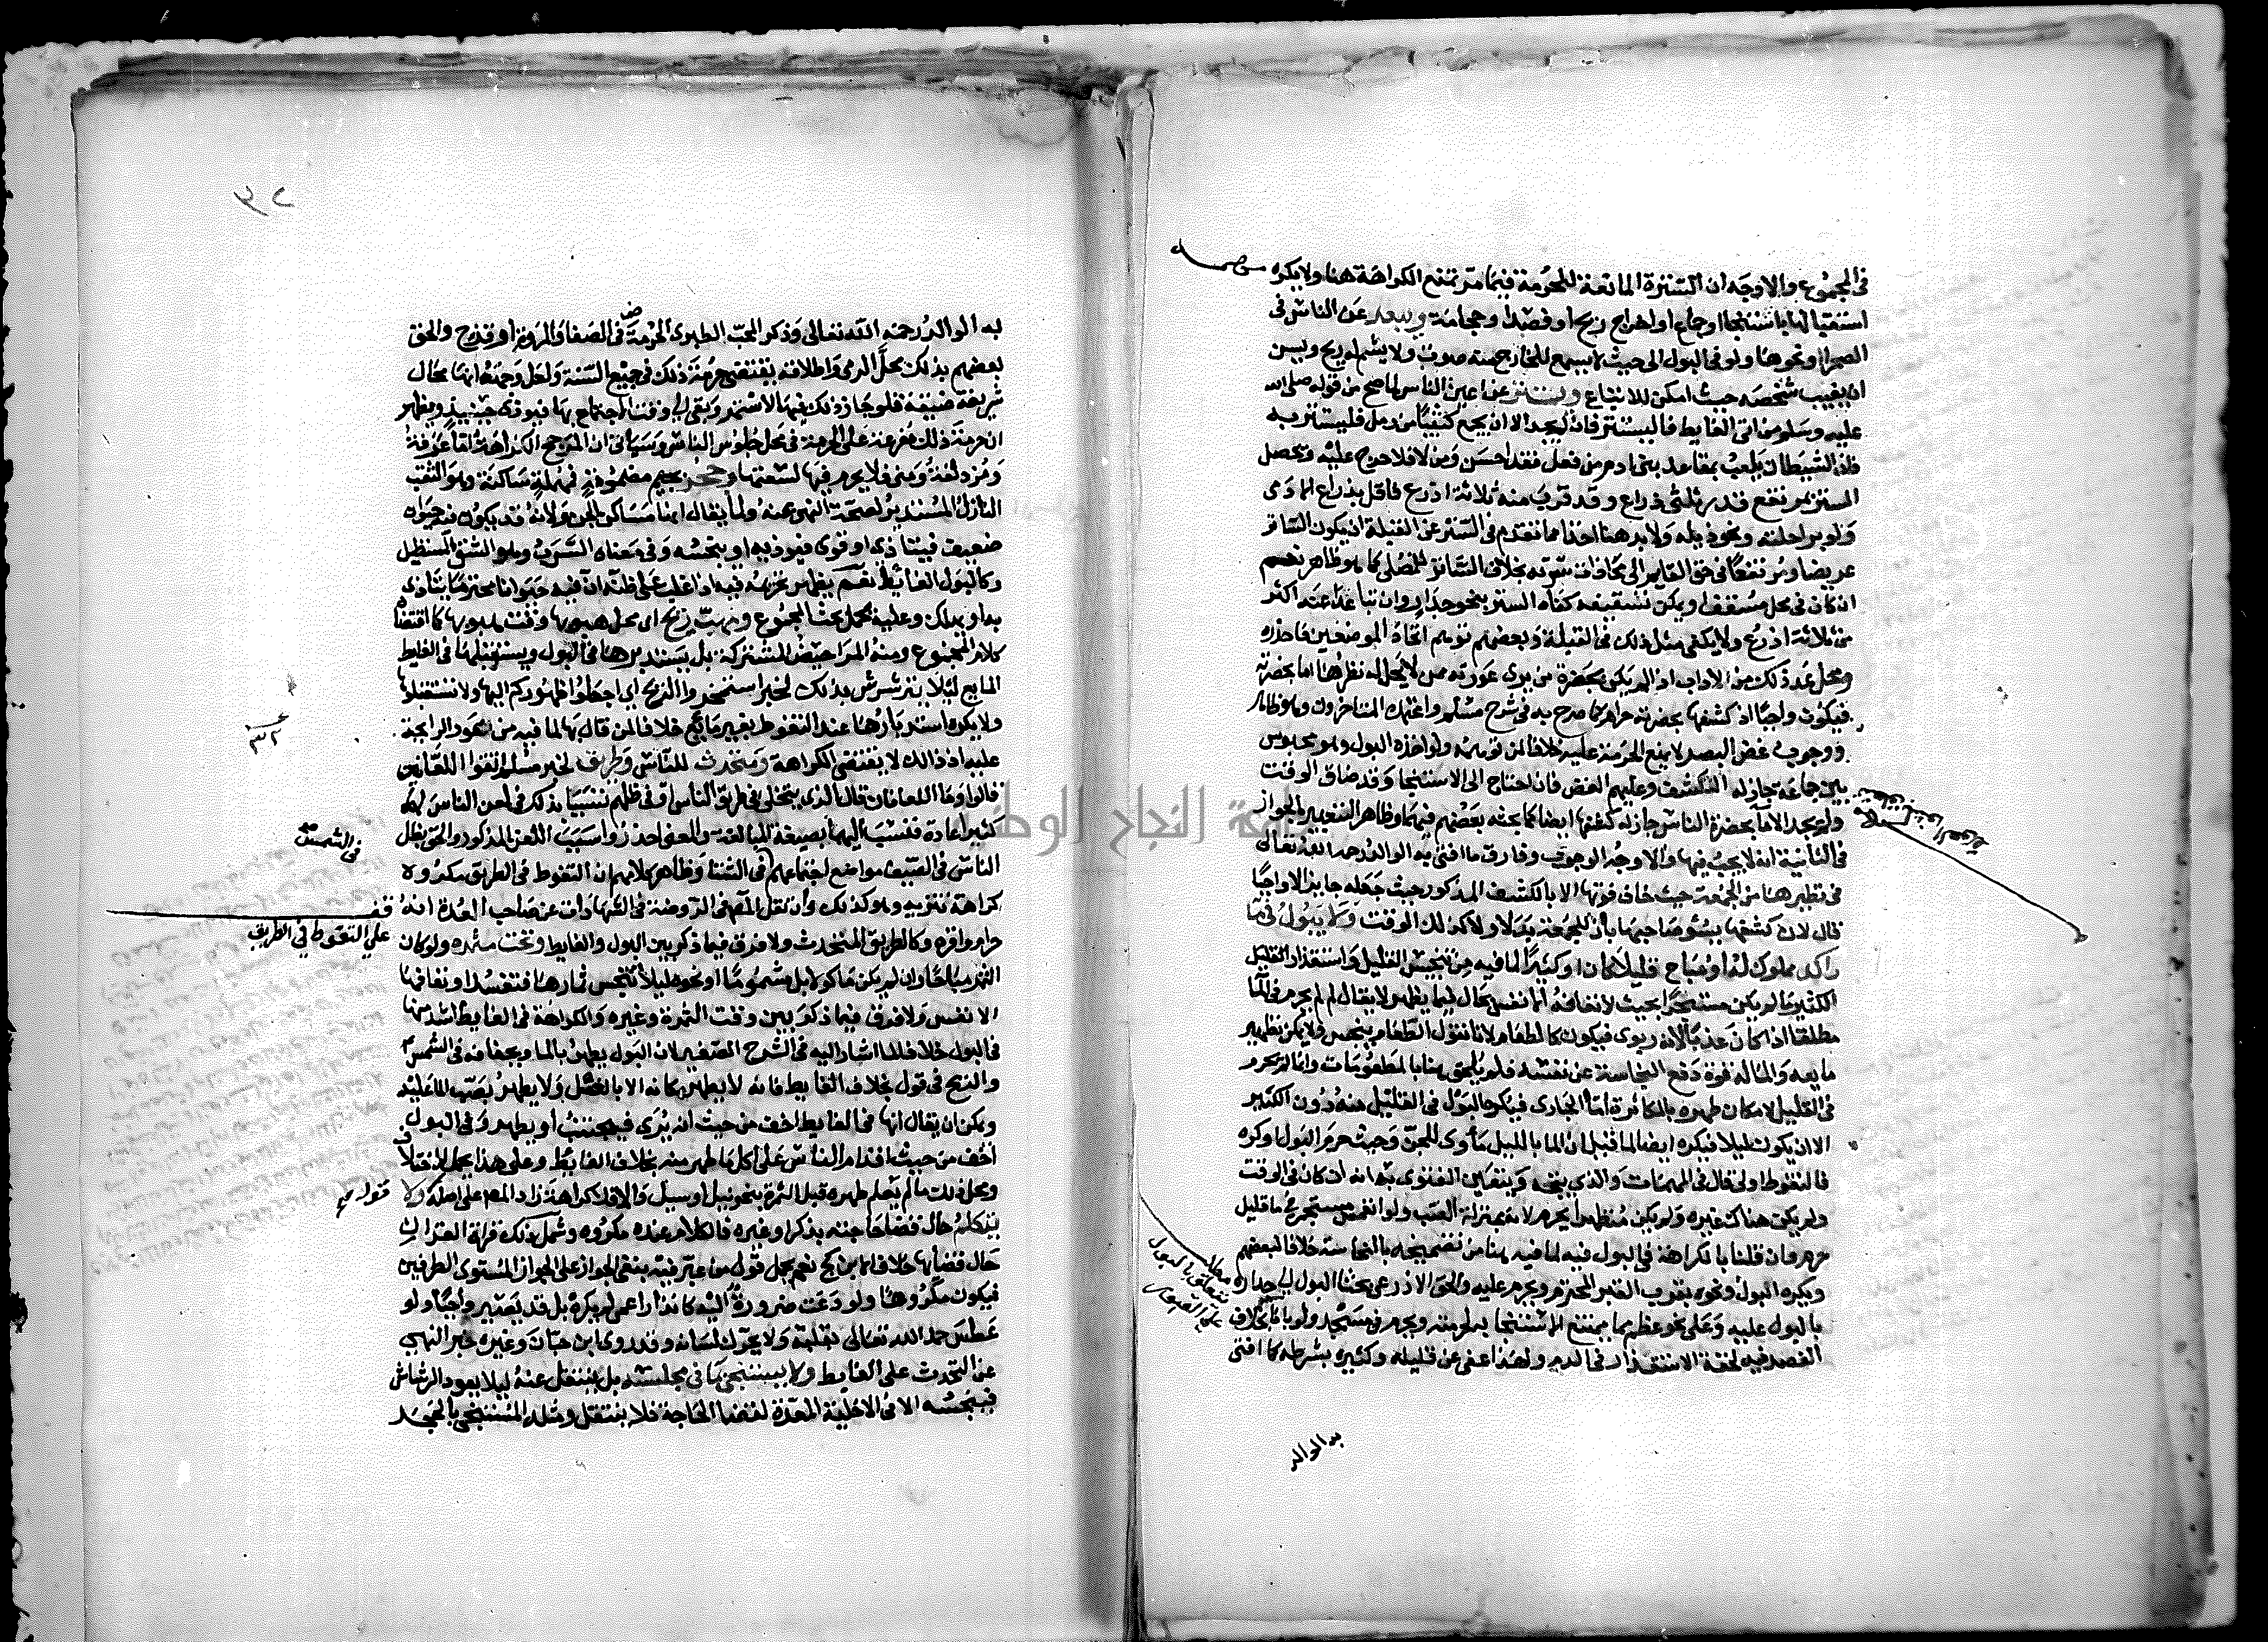 في المجموع والاوجه ان السترة المانعة للحرمة فيما مر تمنع الكراهة هنا ولا يكره
استقبالها باستنجا او جماع او اخراج ريح او فصد او حجامة ويبعد عن الناس في
الصحرا ونحوها ولو في البول الى حيث لا يسمع للخارج منه صوت ولا يشم له ريح ويسن
ان يغيب شخصه حيث امكن للاتباع ويستتر عن اعين الناس لما صح من قوله صلى الله
عليه وسلم من اتى الغايط فاليستتر فان لم يجد الا ان يجمع كثيبا من رمل فليستتر به
فان الشيطان يلعب بمقاعد بني ادم من فعل فقد احسن ومن لا فلا حرج عليه ويحصل
الستر بمرتفع قدر ثلثي ذراع وقد قرب منه ثلاثة اذرع فاقل بذراع الادمي
ولو براحلته ونحو ذيله ولا بد هنا اخذا مما تقدم في الستر عن القبلة ان يكون الساتر
عريضا ومرتفعا في حق القايم الى محاذاة سرته بخلاف الساتر للمصلى كما هو ظاهر نعم
ان كان في محل مسقف او يمكن تسقيفه كفاه الستر بنحو جدار وان تباعد عنه اكثر
من ثلاثة اذرع ولا يكفي مثل ذلك في القبلة وبعضهم توهم اتحاد الموضعين فاحذره
ومحل عد ذلك من الاداب اذا لم يكن بحضرة من يرى عورته ممن لا يحل له نظرها اما بحضرته
فيكون واجبا اذ كشفها بحضرته حرام كما صرح به في شرح مسلم واعتمده المتاخرون وهو ظاهر
ووجوب غض البصر لا يمنع الحرمة عليه خلافا لمن توهمه ولو اخذه البول وهو محبوس
بين جماعة جاز له التكشف وعليهم الغض فان احتاج الى الاستنجا وقد ضاق الوقت
ولم يجد الا ما بحضرة الناس جاز له كشفها ايضا كما بحثه بعضهم فيهما وظاهر التعبير بالجواز
في الثانية انه لا يجب فيها والاوجه الوجوب وفارق ما افتى به الوالد رحمه الله تعالى
في نظيرها من الجمعة حيث خاف فوتها الا بالكشف المذكور حيث جعله جايزا لا واجبا
قال لان كشفها يسؤ صاحبها بان للجمعة بدلا ولا كذلك الوقت ولا يبول في ما
راكد مملوك له او مباح قليلا كان او كثيرا لما فيه من تنجيس القليل واستقذار القليل
الكثير ما لم يكن مستبحرا بحيث لا تعافه النفس بحال فيما يظهر لا يقال لم لم يحرم في الما
مطلقا اذا كان عذبا لانه ربوى فيكون كالطعام لانا نقول الطعام ينجس ولا يمكن تطهير
مايعه والما له قوة دفع النجاسة عن نفسه فلم يلحق هنا بالمطعومات وانما لم يحرم
في القليل لامكان طهره بالمكاثرة اما الجاري فيكره البول في القليل منه دون الكثير
الا ان يكون ليلا فيكره ايضا لما قيل ان الما بالليل مأوى للجن وحيث حرم البول او كره
فالتغوط اولى قال في المهمات والذي يتجه ويتعين الفتوى به انه ان كان في الوقت
ولم يكن هناك غيره ولم يكن متطهرا يحرم لانه بمنزلة الصب ولو انغمس مستجمر في ما قليل
حرم وان قلنا بالكراهة في البول فيه لما فيه هنا من تضميخه بالنجاسة خلافا لبعضهم
ويكره البول ونحوه بقرب القبر المحترم ويحرم عليه والحق الاذرعي بحثا البول الى جداره
بالبول عليه وعلى نحو عظم مما يمتنع الاستنجا به لحرمته ويحرم في مسجد ولو باناء بخلاف
الفصد فيه لخفة الاستقذار في الدم ولهذا عفي عن قليله وكثيره بشرطه كما افتى
به الوالد
مطلب
يتعلق بالبول
على القبور
٣٢
به الوالد رحمه الله تعالى وذكر المحب الطبري الحرمة في الصفا والمروة او قزح والحق
بعضهم بذلك محل الرمي واطلاقه يقتضي حرمة ذلك في جميع السنة ولعل وجهه انها محال
شريفة ضيقة فلو جاز ذلك فيها لاستمر وبقي الى وقت الاجتماع بها فيوذي حينيذ ويظهر
ان حرمة ذلك مفرعة على الحرمة في محل جلوس الناس وسياتي ان المرجح الكراهة اما عرفة
ومزدلفة ومنى فلا يحرم فيها لسعتها وجحر بجيم مضمومة فمهملة ساكنة وهو الثقب
النازل المستدير لصحة النهي عنه ولما يقال انها مساكن الجن ولانه قد يكون فيه حيوان
ضعيف فيتاذى او قوي فيوذيه او ينجسه وفي معناه السرب وهو الشق المستطيل
وكالبول الغائط نعم يظهر تحريمه فيه اذا غلب على ظنه ان فيه حيوانا محترما يتاذى
به او يهلك وعليه يحمل بحث المجموع ومهب ريح اي محل هبوبها وقت هبوبها كما اقتضاه
كلام المجموع ومنه المراحيض المشتركة بل يستدبرها في البول ويستقبلها في الغايط
المايع ليلا يترشرش بذلك لخبر استمخروا الريح اي اجعلوا ظهوركم اليها ولا تستقبلوها
ولا يكره استدبارها عند التغوط بغير مايع خلافا لمن قال بها لما فيه من عود الرايحة
عليه اذ ذالك لا يقتضي الكراهة ومتحدث للناس وطريق لخبر مسلم اتقوا اللعانين
قالوا وما اللعانان قال الذي يتخلى في طريق الناس او في ظلهم تسببا بذلك في لعن الناس لهما
كثيرا عادة فنسب اليهما بصيغة المبالغة والمعنى احذروا سبب اللعن المذكور والحق بظل
الناس في الصيف مواضع اجتماعهم في الشتا وظاهر كلامهم ان التغوط في الطريق مكروه
كراهة تنزيه وهو كذلك وان نقل المص في الروضة في الشهادات عن صاحب العدة انه
حرام واقره وكالطريق المتحدث ولا فرق فيما ذكر بين البول والغايط وتحت مثمرة ولو كان
الثمر مباحا وان لم يكن ماكولا بل مشموما او نحوه ليلا تنجس ثمارها فتفسد او تعافها
الانفس ولا فرق فيما ذكر بين وقت الثمرة وغيره والكراهة في الغايط اشد منها
في البول خلافا لما اشار اليه في الشرح الصغير لان البول يطهر بالما وبجفافه في الشمس
والريح في قول بخلاف الغايط فانه لا يطهر مكانه الا بالغسل ولا يطهر بصب الما عليه
ويمكن ان يقال انها في الغايط اخف من حيث انه يرى فيجتنب او يطهر وفي البول
اخف من حيث اقدام الناس على اكل ما طهر منه بخلاف الغايط وعلى هذا يحمل الاختلاف
ومحل ذلك ما لم يعلم طهره قبل الثمرة بنحو نيل او سيل والا فلا كراهة زاد المص على اصله ولا
يتكلم حال قضا حاجته بذكر او غيره فالكلام عنده مكروه وشمل ذلك قراة القران
حال قضايها خلافا لابن كج نعم يحمل قول من عبر فيه بنفي الجواز على الجواز المستوى الطرفين
فيكون مكروها ولو دعت ضرورة اليه كانذار اعمى لم يكره بل قد يصير واجبا ولو
عطس حمد الله تعالى بقلبه ولا يحرك لسانه وقد روى ابن حبان وغيره خبر النهي
عن التحدث على الغايط ولا يستنجي بما في مجلسه بل ينتقل عنه ليلا يعود الرشاش
فينجسه الا في الاخلية المعدة لقضا الحاجة فلا ينتقل ومثله المستنجي بالحجر
في الشمس
قف
على التغوط في الطريق
جامعة النجاح الوطنية